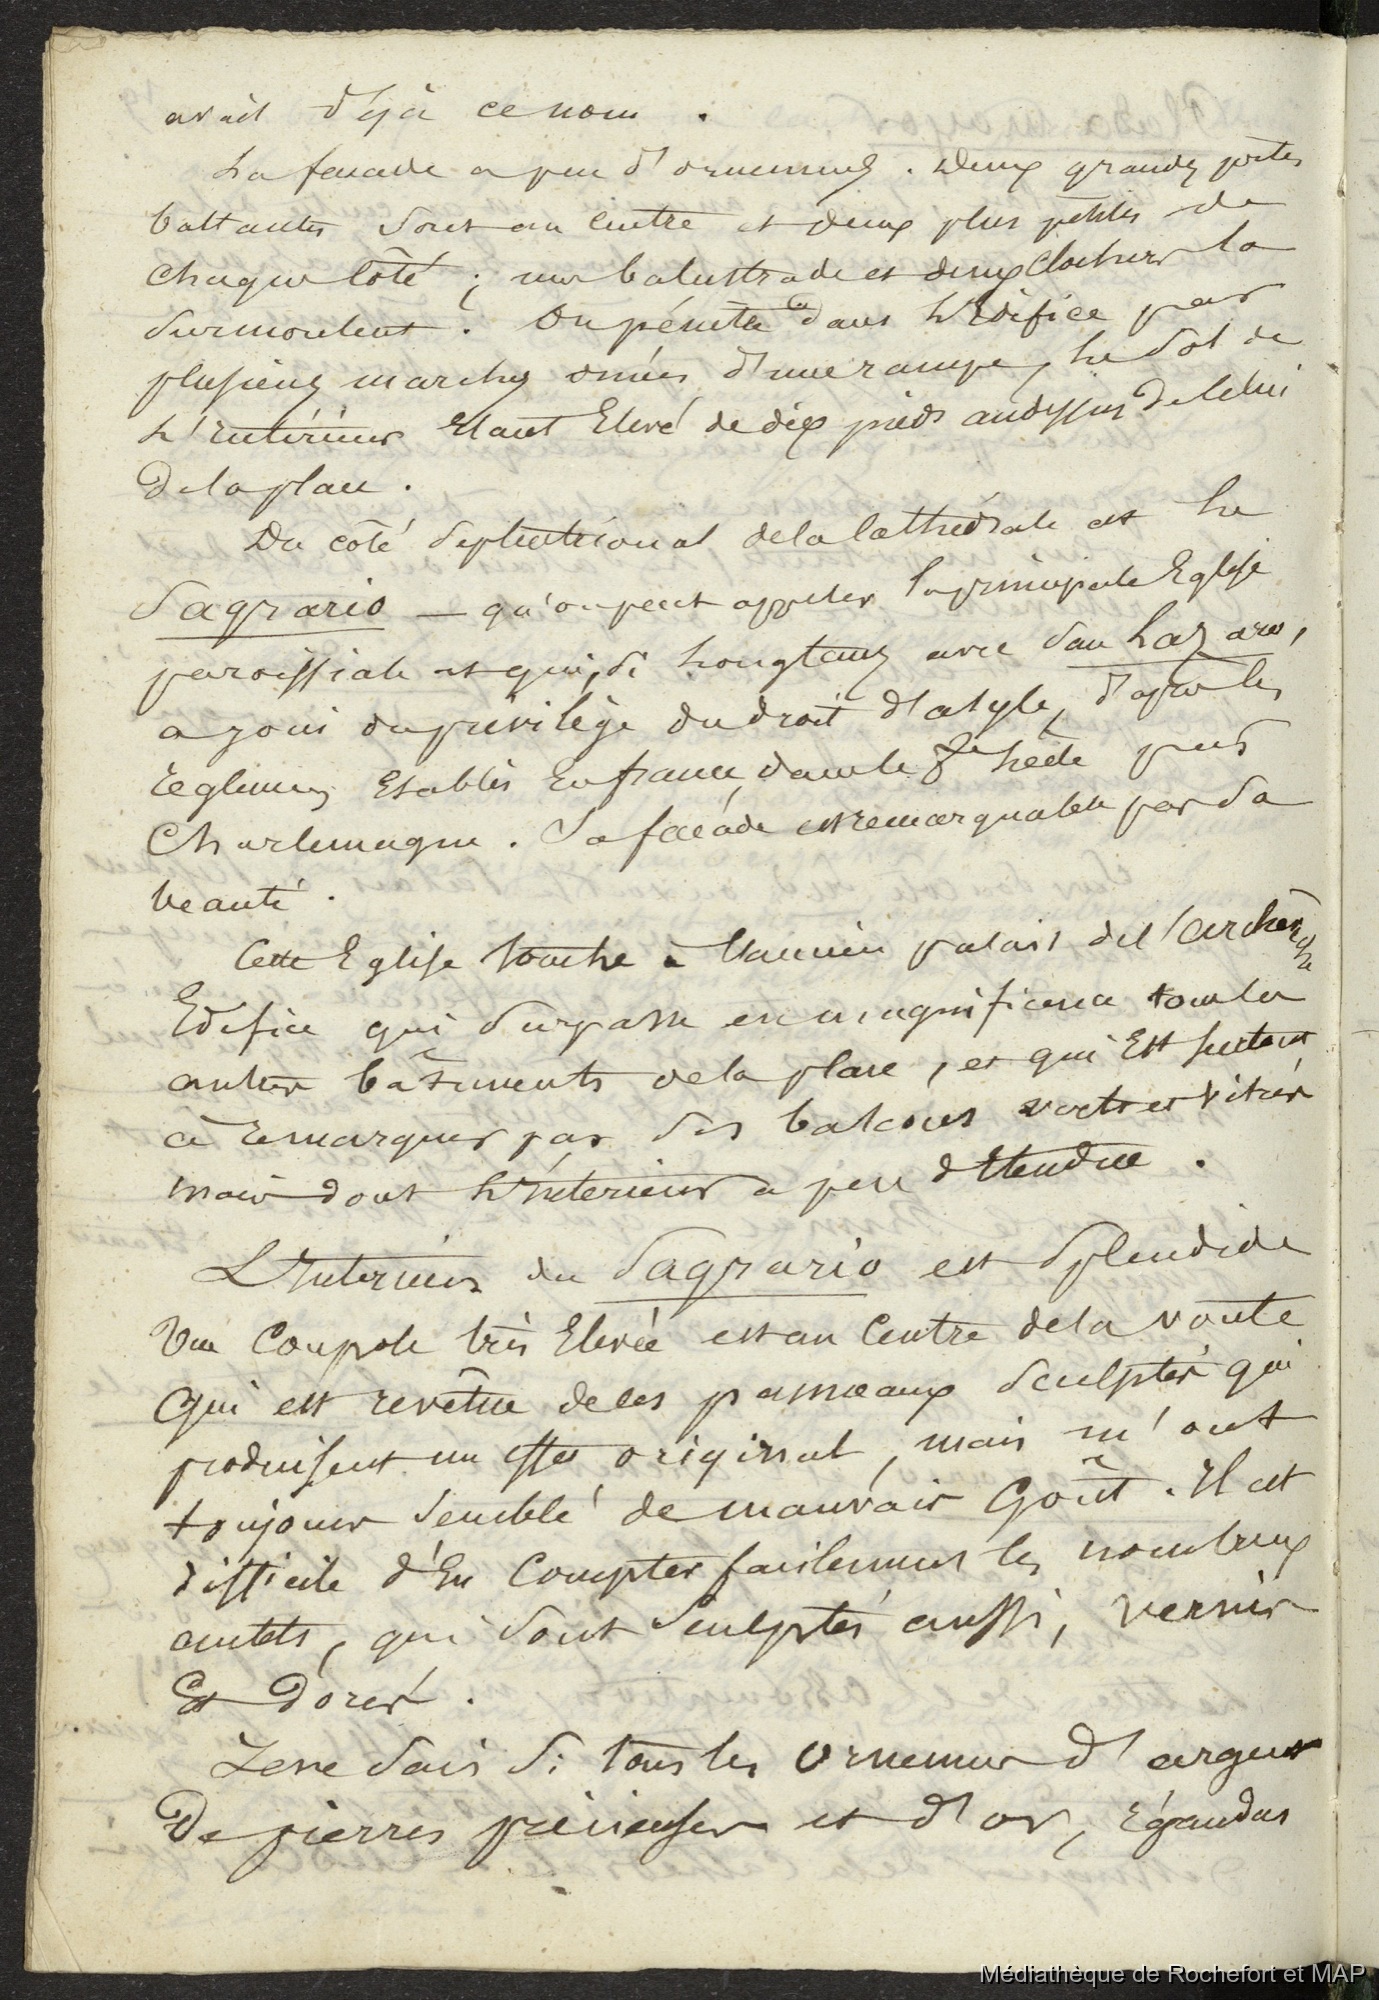 avait déjà ce nom .
La facade a peu d'ornemens . Deux grandes portes
battantes sont au centre et deux plus petites de
chaque côté ; une balustrade et deux clochers la
surmontent . On pénètre dans l'Edifice par
plusieurs marches ornées d'une rampe, le sol de
l'intérieur Etant Elevé de dix pieds audessus de Celui
De la place .
Du côté septentrional de la Cathédrale est Le
Sagrario — qu'on peut appeler la principale Eglise
paroissiale et qui, si Longtems avec San Lazaro,
a joui du privilége du droit d'asyle, d'après les
reglemens Etablis En france, dans le 8me Siècle par
Charlemagne . Sa facáde est remarquable par sa
beauté .
Cette Eglise touche à l'ancien palais de l'archevêché
Edifice qui surpasse en magnificence tous les
autres bâtiments de la place, et qui Est surtout
à remarquer par ses balcons verts et vitrés
mais dont L'interieur a peu d'Etendue .
L'Interieur du Sagrario est splendide
Une Coupole très Elevée est au Centre de la voute
Qui est revêtue de ces panneaux sculptés qui
produisent un effet original, mais m'ont
toujours semblé de mauvais Goût . Il est
difficile d'En Compter facilement les nombreux
autels, qui sont sculptés aussi, vernis
Et Dorés .
Je ne sais si tous les Ornemens d'argent
De pierres précieuses et d'or, répandus
Médiathèque de Rochefort et MAP